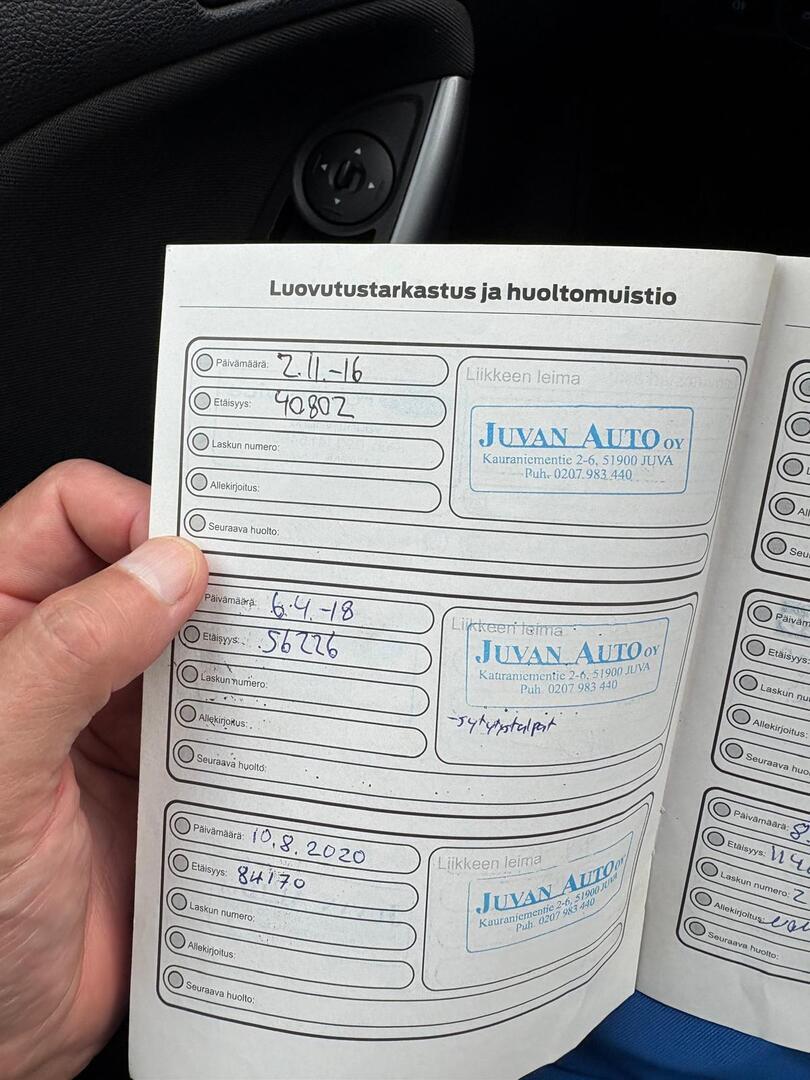 Luovutustarkastus ja huoltomuistio
Päivämäärä: 2.11.-16
Etäisyys: 40802
Laskun numero:
Allekirjoitus:
Seuraava huolto:
Liikkeen leima
JUVAN AUTO OY
Kauraniementie 2-6, 51900 JUVA
Puh. 0207 983 440
Päivämäärä: 6.4.-18
Etäisyys: 56226
Laskun numero:
Allekirjoitus:
Seuraava huolto:
Liikkeen leima
JUVAN AUTO OY
Kauraniementie 2-6, 51900 JUVA
Puh. 0207 983 440
-sytytystulpat
Päivämäärä: 10.8.2020
Etäisyys: 84170
Laskun numero:
Allekirjoitus:
Seuraava huolto:
Liikkeen leima
JUVAN AUTO OY
Kauraniementie 2-6, 51900 JUVA
Puh. 0207 983 440
Etäisyys:
Laskun nu
Allekirjoitus:
Seuraava huo
Päivämäärä: 8
Etäisyys: 114
Laskun numero: 2
Allekirjoitus:
Seuraava huolto: